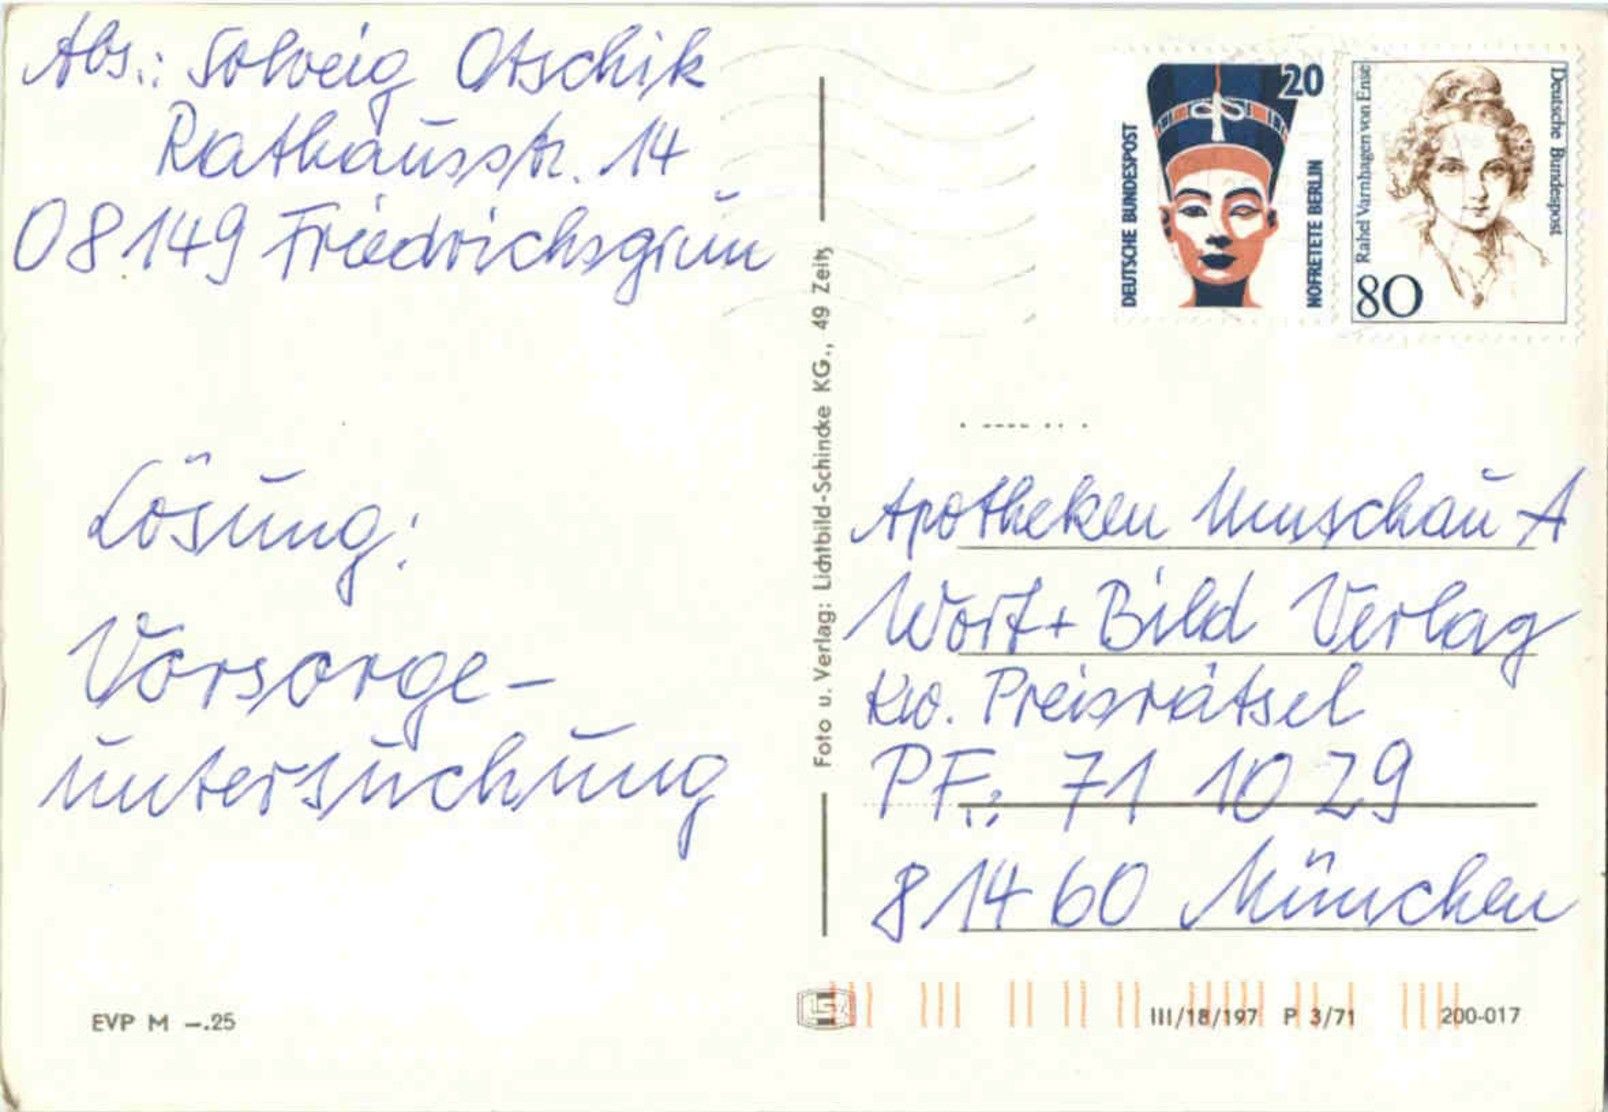 Abs.: Solveig Otschik
Rathausstr. 14
08149 Friedrichsgrün
Lösung:
Vorsorge-
untersuchung
EVP M –.25
Foto u. Verlag: Lichtbild-Schincke KG., 49 Zeitz
DEUTSCHE BUNDESPOST
20
NOFRETETE BERLIN
Rahel Varnhagen von Ense
80
Deutsche Bundespost
Apotheken Umschau A
Wort + Bild Verlag
Kw. Preisrätsel
PF.: 71 10 29
81460 München
III/18/197 P 3/71 200-017